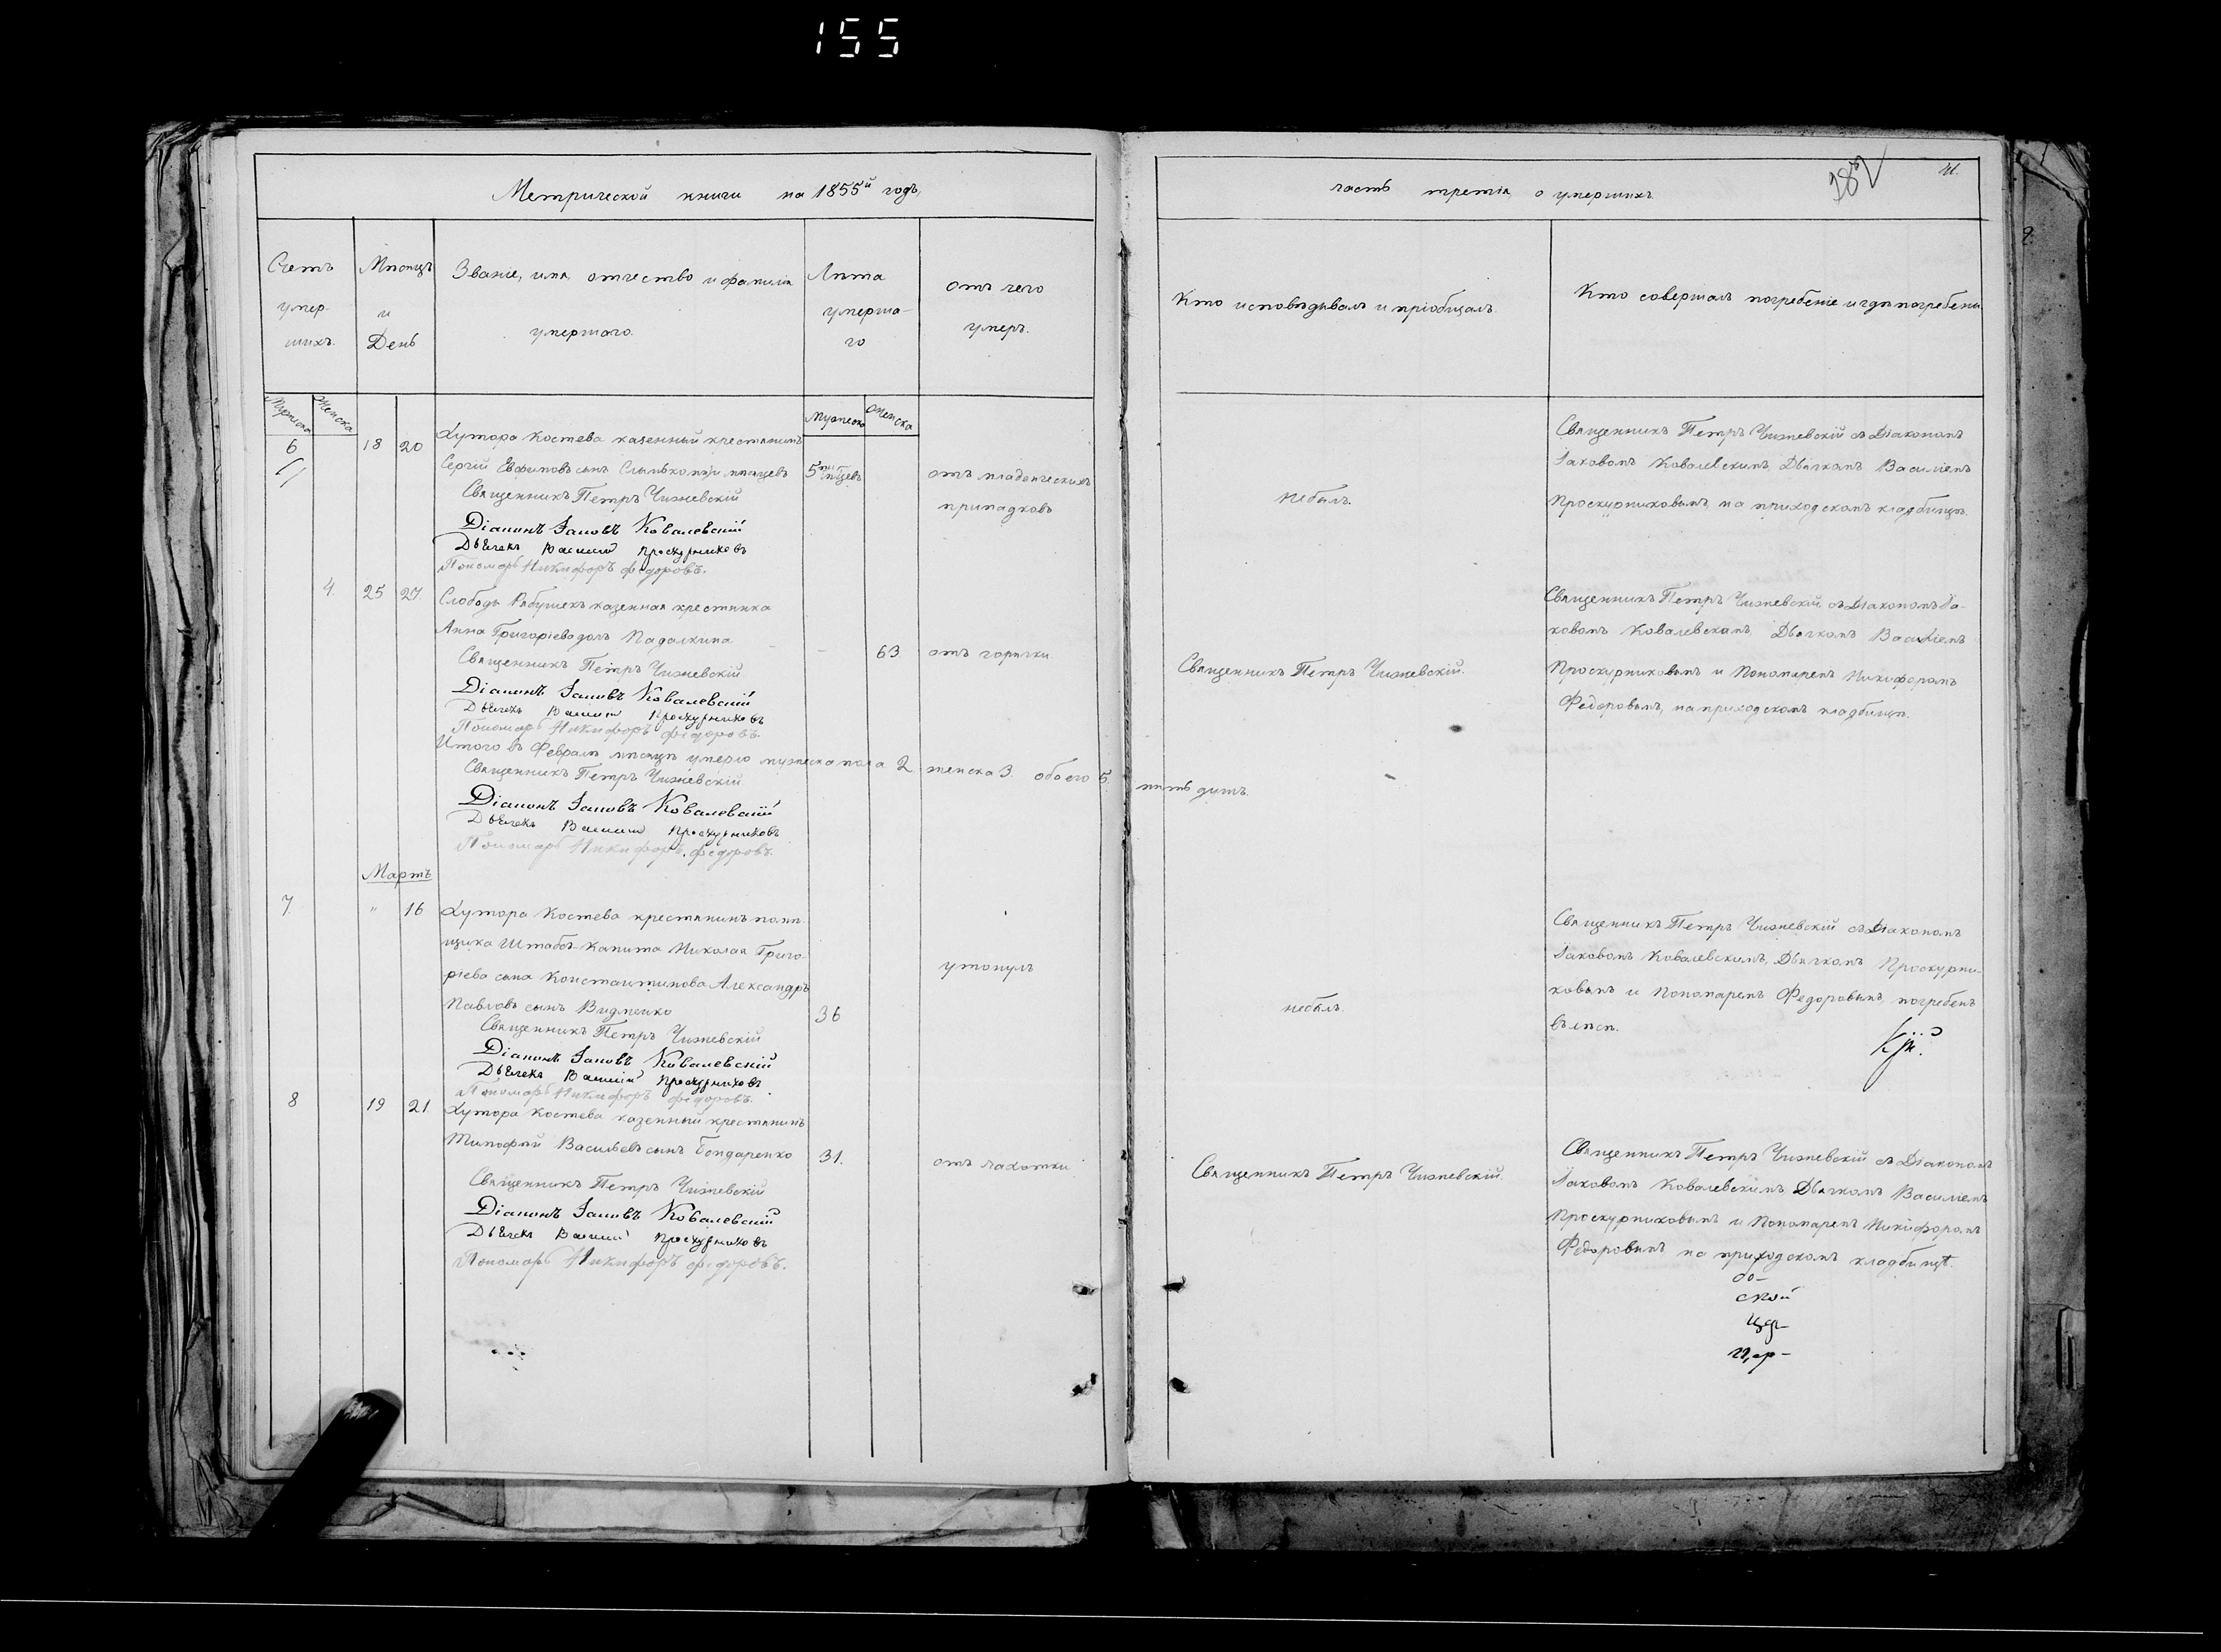 155
Метрической книги на 1855й годъ,
Счетъ
умер-
шихъ.
Мѣсяцъ
и
День
Званіе, имя, отчество и фамилія
умершаго.
Лѣта
умерша-
го
отъ чего
умеръ.
Мужеска
Женска
Мужеска
Женска
6
18 20
Хутора Костева казенный крестьянинъ
Сергій Евфимовъ сынъ
5ти мѣсяцевъ
отъ младенческихъ
припадковъ
Священникъ Петръ Чижевскій
Діаконъ Іаковъ Ковалевскій
Дьячекъ Василій Проскурниковъ
Пономарь Никифоръ Федоровъ.
4. 25 27.
Слободы Рябушекъ казенная крестьянка
Анна Григоріева дочь Падалкина
63
отъ горячки
Священникъ Петръ Чижевскій
Діаконъ Іаковъ Ковалевскій
Дьячекъ Василій Проскурниковъ
Пономарь Никифоръ Федоровъ.
Итого въ Февралѣ мѣсяцѣ умерло мужеска пола 2. женска 3. обоего 5. пять душъ.
Священникъ Петръ Чижевскій
Діаконъ Іаковъ Ковалевскій
Дьячекъ Василій Проскурниковъ
Пономарь Никифоръ Федоровъ.
Мартъ
7. " 16
Хутора Костева крестьянинъ помѣ-
щика Штабсъ-Капитана Николая Григо-
ріева сына Константинова Александръ
Павловъ сынъ Видменко
36
утонулъ
Священникъ Петръ Чижевскій
Діаконъ Іаковъ Ковалевскій
Дьячекъ Василій Проскурниковъ
Пономарь Никифоръ Федоровъ.
8 19 21.
Хутора Костева казенный крестьянинъ
Тимофѣй Васильевъ сынъ Бондаренко
31.
отъ чахотки
Священникъ Петръ Чижевскій
Діаконъ Іаковъ Ковалевскій
Дьячекъ Василій Проскурниковъ
Пономарь Никифоръ Федоровъ.
часть третія, о умершихъ.
Кто исповѣдывалъ и пріобщалъ.
Кто совершалъ погребеніе и гдѣ погребены.
небылъ.
Священникъ Петръ Чижевскій съ Діакономъ
Іаковомъ Ковалевскимъ, Дьячкомъ Василіемъ
Проскурниковымъ, на приходскомъ кладбищѣ.
Священникъ Петръ Чижевскій.
Священникъ Петръ Чижевскій, съ Діакономъ Іа-
ковомъ Ковалевскимъ, Дьячкомъ Василіемъ
Проскурниковымъ и Пономаремъ Никифоромъ
Федоровымъ, на приходскомъ кладбищѣ.
небылъ.
Священникъ Петръ Чижевскій съ Діакономъ
Іаковомъ Ковалевскимъ, Дьячкомъ Проскурни-
ковымъ и Пономаремъ Федоровымъ, погребенъ
въ лѣсѣ.
Священникъ Петръ Чижевскій.
Священникъ Петръ Чижевскій съ Діакономъ
Іаковомъ Ковалевскимъ, Дьячкомъ Василіемъ
Проскурниковымъ и Пономаремъ Никифоромъ
Федоровымъ на приходскомъ кладбищѣ.
ской